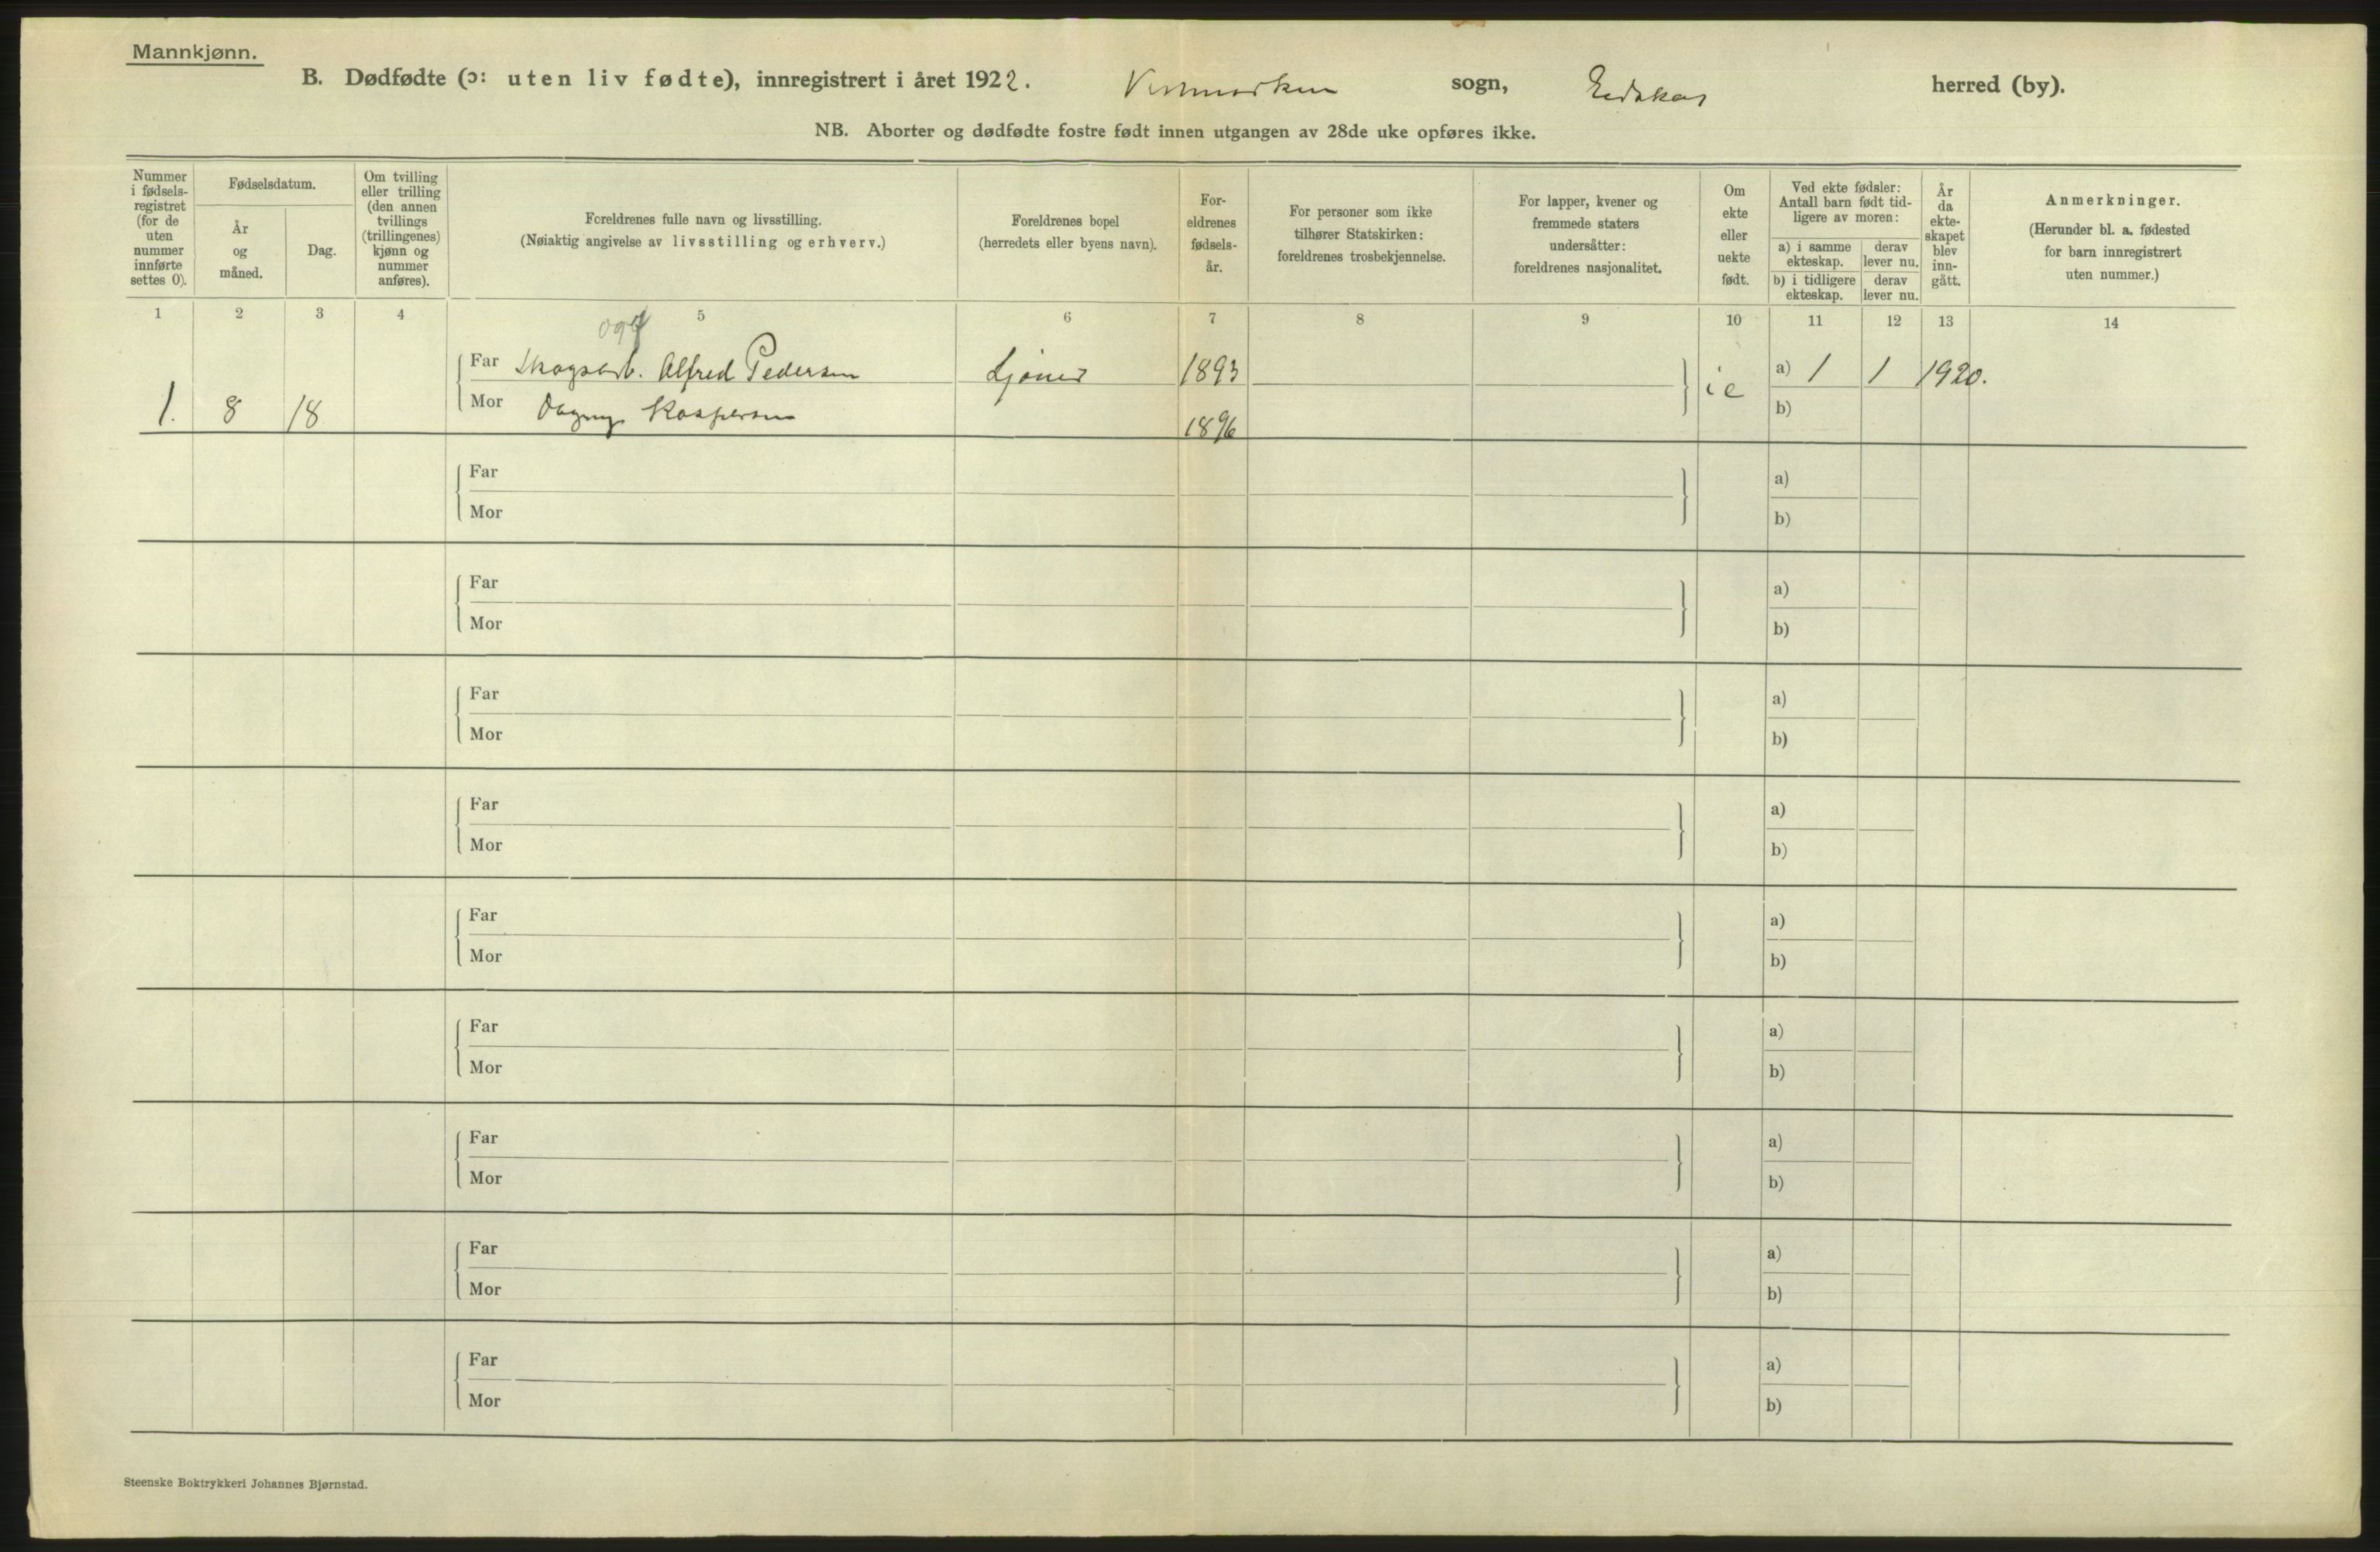 Mannkjønn.
B. Dødfødte (ɔ: uten liv fødte), innregistrert i året 1922. Vestmarken sogn, Eidskog herred (by).
NB. Aborter og dødfødte fostre født innen utgangen av 28de uke opføres ikke.
Nummer i fødsels-registret (for de uten nummer innførte settes 0).
Fødselsdatum.
År og måned.
Dag.
Om tvilling eller trilling (den annen tvillings (trillingenes) kjønn og nummer anføres).
Foreldrenes fulle navn og livsstilling.
(Nøiaktig angivelse av livsstilling og erhverv.)
Foreldrenes bopel
(herredets eller byens navn).
For-eldrenes fødsels-år.
For personer som ikke tilhører Statskirken: foreldrenes trosbekjennelse.
For lapper, kvener og fremmede staters undersåtter: foreldrenes nasjonalitet.
Om ekte eller uekte født.
Ved ekte fødsler: Antall barn født tid-ligere av moren:
a) i samme ekteskap.
derav lever nu.
b) i tidligere ekteskap.
derav lever nu.
År da ekte-skapet blev inn-gått.
Anmerkninger.
(Herunder bl. a. fødested for barn innregistrert uten nummer.)
1 2 3 4 5 6 7 8 9 10 11 12 13 14
Far Skogsarb. Alfred Pedersen 1893 a) 1 1 1920.
1. 8 18 Mor Dagny Kaspersen 1896 ie b)
Far a)
Mor b)
Far a)
Mor b)
Far a)
Mor b)
Far a)
Mor b)
Far a)
Mor b)
Far a)
Mor b)
Far a)
Mor b)
Far a)
Mor b)
Far a)
Mor b)
Steenske Boktrykkeri Johannes Bjørnstad.